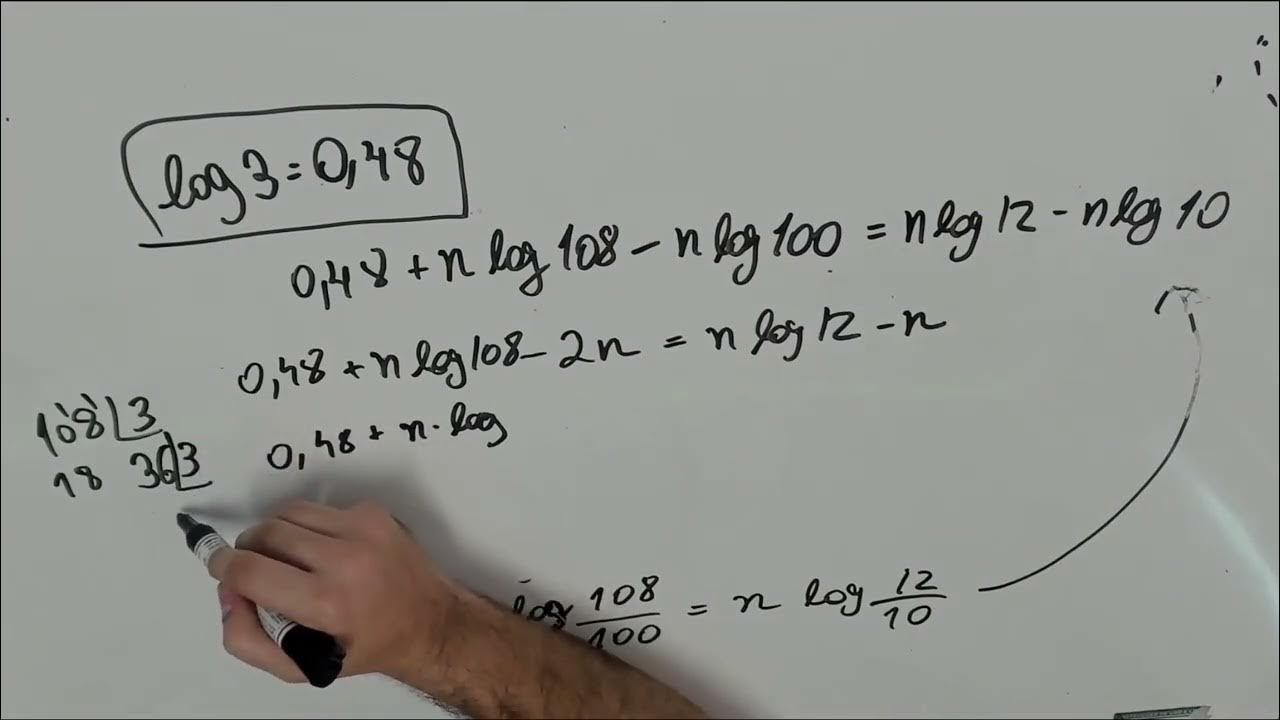 log 3 = 0,48
0,48 + n log 108 - n log 100 = n log 12 - n log 10
0,48 + n log 108 - 2n = n log 12 - n
0,48 + n · log
108 3
18 36 3
log 108/100 = n log 12/10